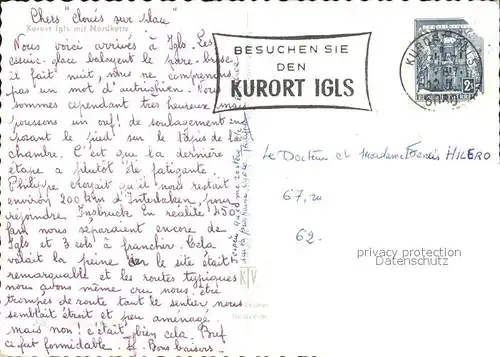 Chers "cloués sur place"
Kurort Igls mit Nordkette
Nous voici arrivés à Igls. Les
essuie-glace balayent le pare-brise,
il fait nuit, nous ne comprenons
pas un mot d'autrichien. Nous
sommes cependant très heureux mais
poussons un ouf! de soulagement en
posant le pied sur le tapis de la
chambre. C'est que la dernière
étape a plutôt été fatigante.
Philippe croyait qu'il nous restait
environ 200 km d'Interlaken, pour
rejoindre Insbruck. En réalité 450
km nous séparaient encore de
Igls et 3 cols à franchir. Cela
valait la peine car le site était
remarquable et les routes typiques
nous avons même cru nous être
trompés de route tant le sentier nous
semblait étroit et peu aménagé
mais non! c'était bien cela. Bref
ce fut formidable. Bons baisers.
BESUCHEN SIE
DEN
KURORT IGLS
KURORT IGLS
2
Le Docteur et Madame Francis HILERO
67,
62.
KTV
privacy protection
Datenschutz